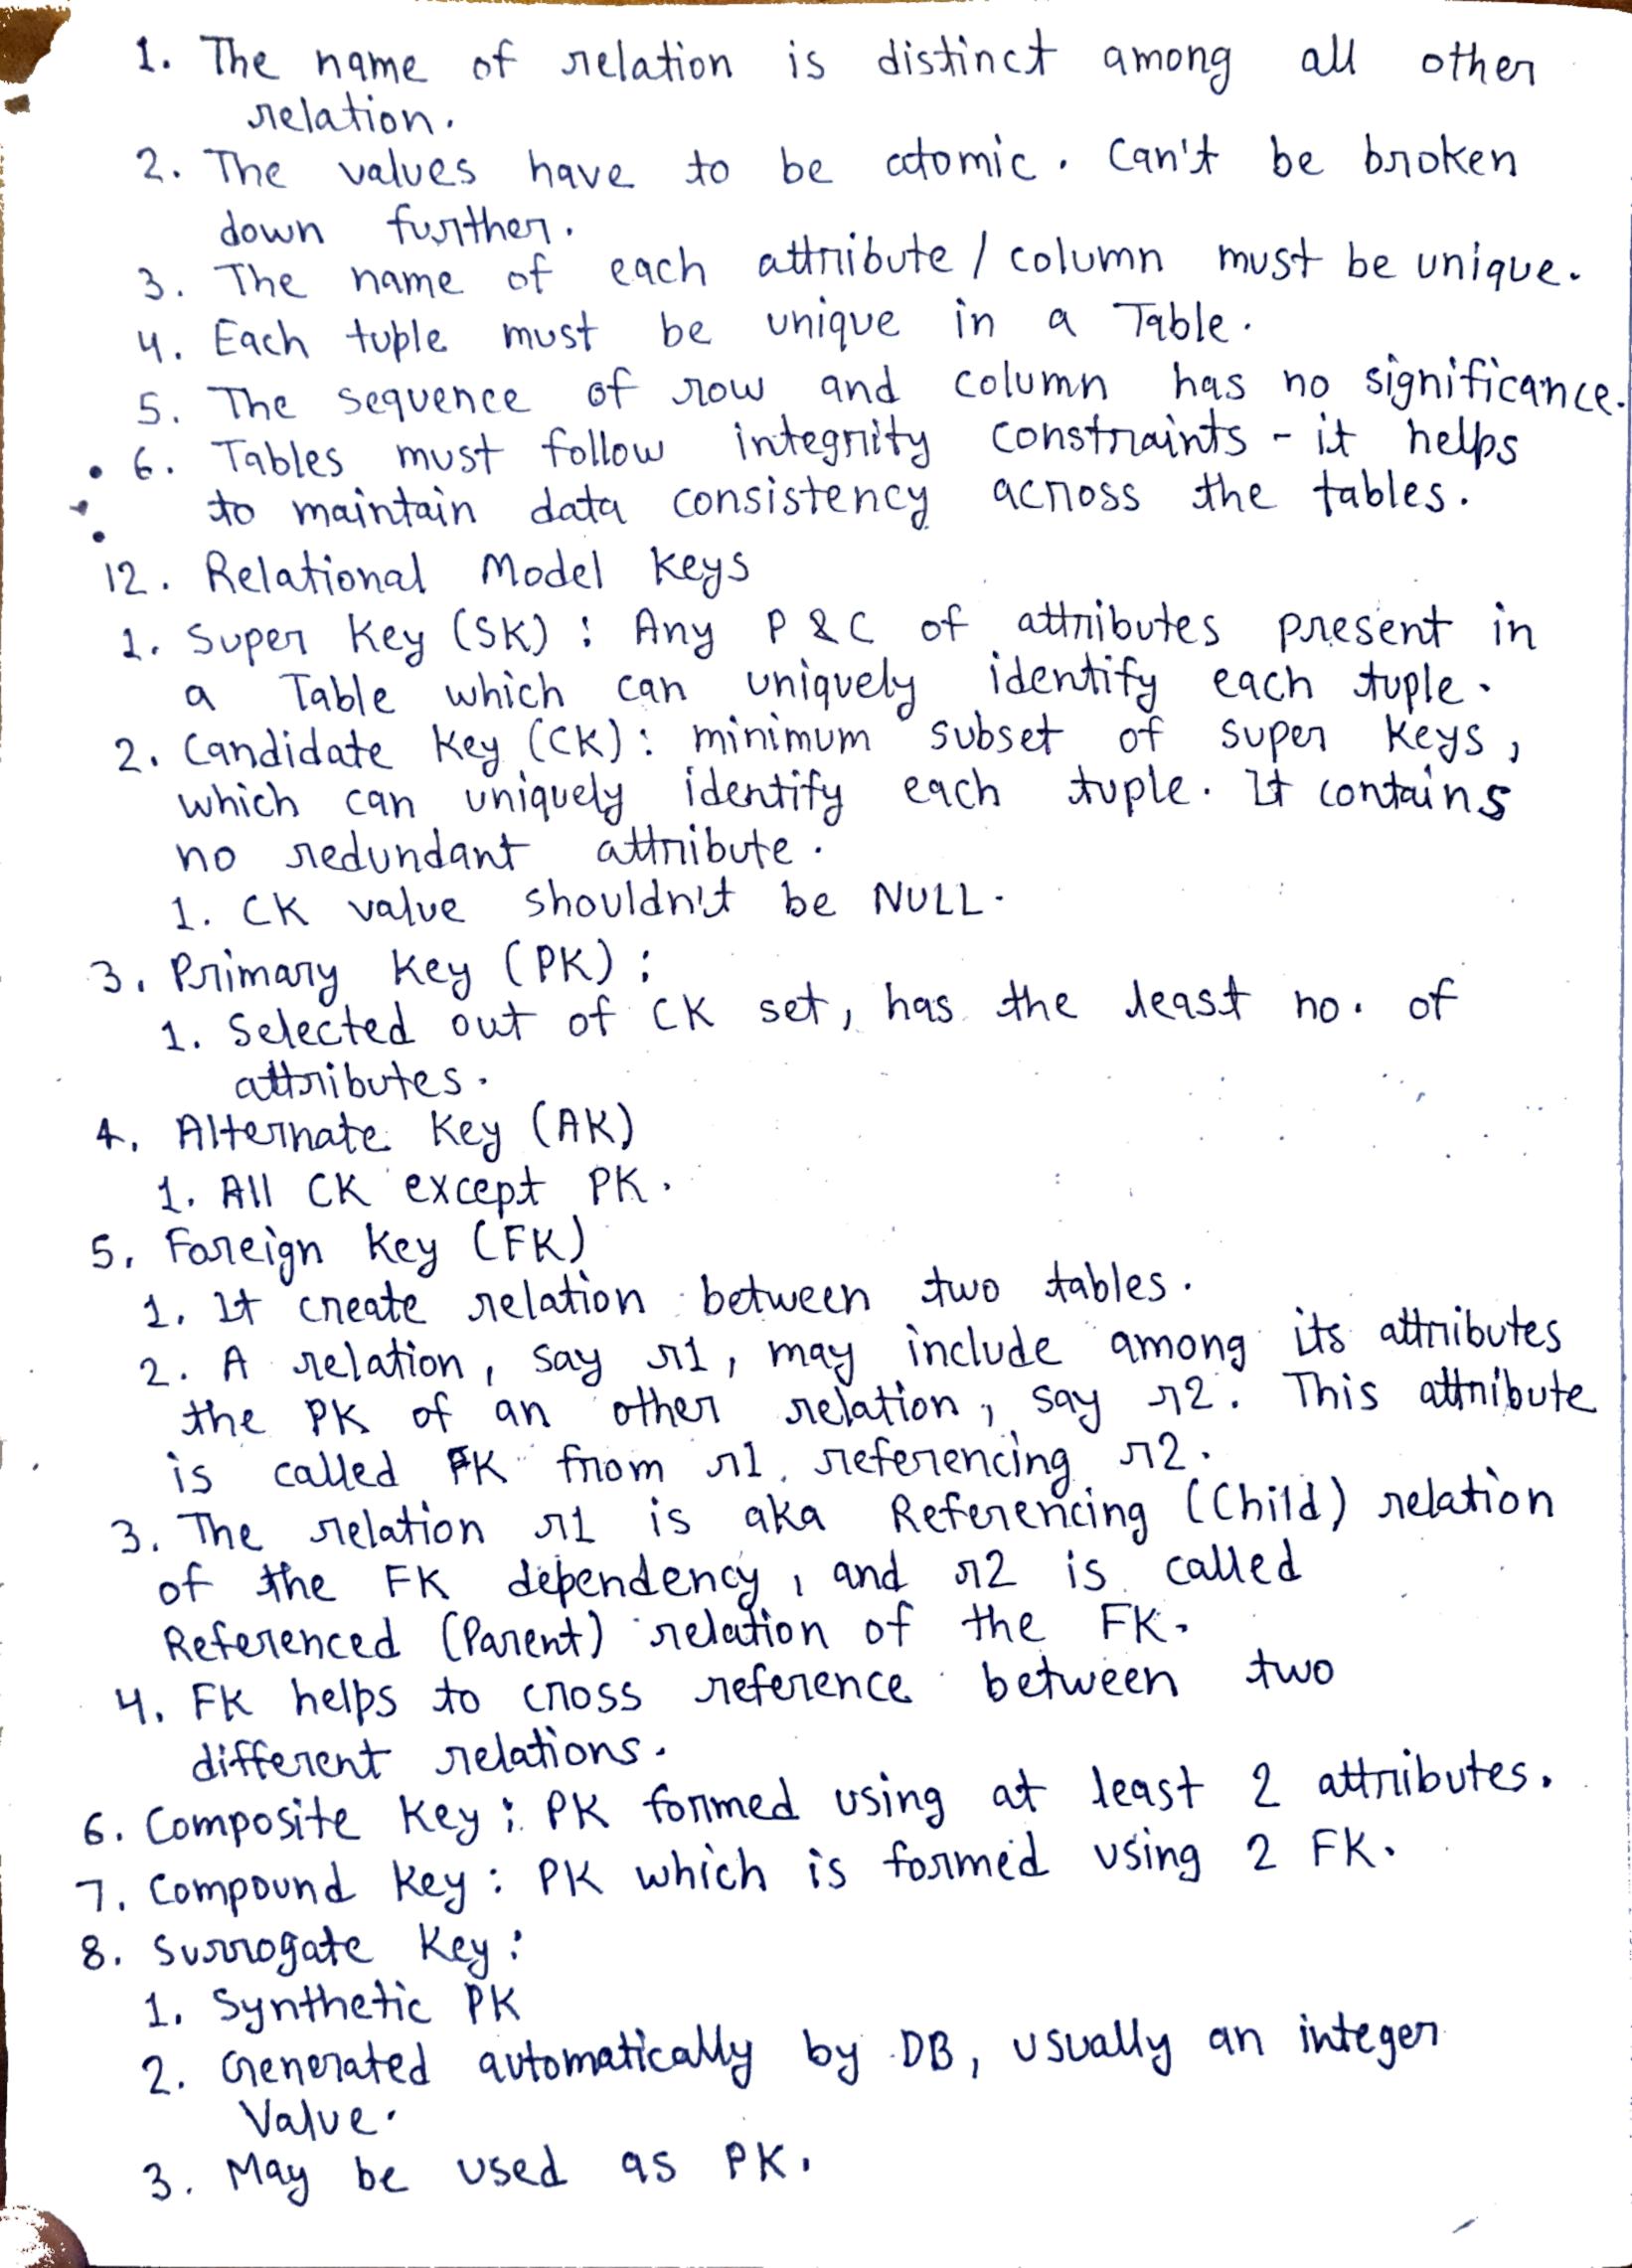 1. The name of relation is distinct among all other
relation.
2. The values have to be atomic. Can't be broken
down further.
3. The name of each attribute / column must be unique.
4. Each tuple must be unique in a Table.
5. The sequence of row and column has no significance.
• 6. Tables must follow integrity constraints - it helps
to maintain data consistency across the tables.
12. Relational Model Keys
1. Super Key (SK) : Any P & C of attributes present in
a Table which can uniquely identify each tuple.
2. Candidate Key (CK) : minimum subset of super keys,
which can uniquely identify each tuple. It contains
no redundant attribute.
1. CK value shouldn't be NULL.
3. Primary Key (PK) :
1. Selected out of CK set, has the least no. of
attributes.
4. Alternate Key (AK)
1. All CK except PK.
5. Foreign Key (FK)
1. It create relation between two tables.
2. A relation, say r1, may include among its attributes
the PK of an other relation, say r2. This attribute
is called FK from r1 referencing r2.
3. The relation r1 is aka Referencing (Child) relation
of the FK dependency, and r2 is called
Referenced (Parent) relation of the FK.
4. FK helps to cross reference between two
different relations.
6. Composite Key : PK formed using at least 2 attributes.
7. Compound Key : PK which is formed using 2 FK.
8. Surrogate Key :
1. Synthetic PK
2. Generated automatically by DB, usually an integer
Value.
3. May be used as PK.